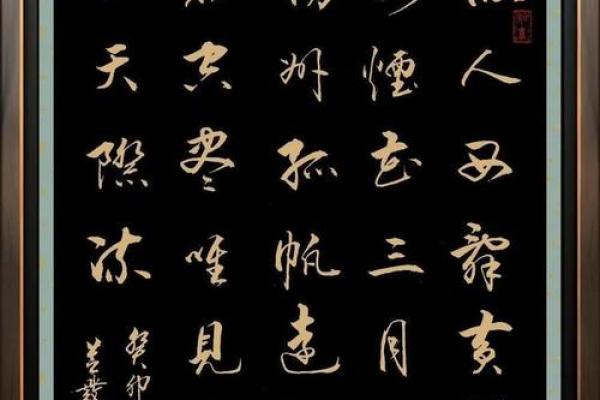 人西辭黃
煙花三月
州孤帆遠
空盡唯見
天際流
癸卯